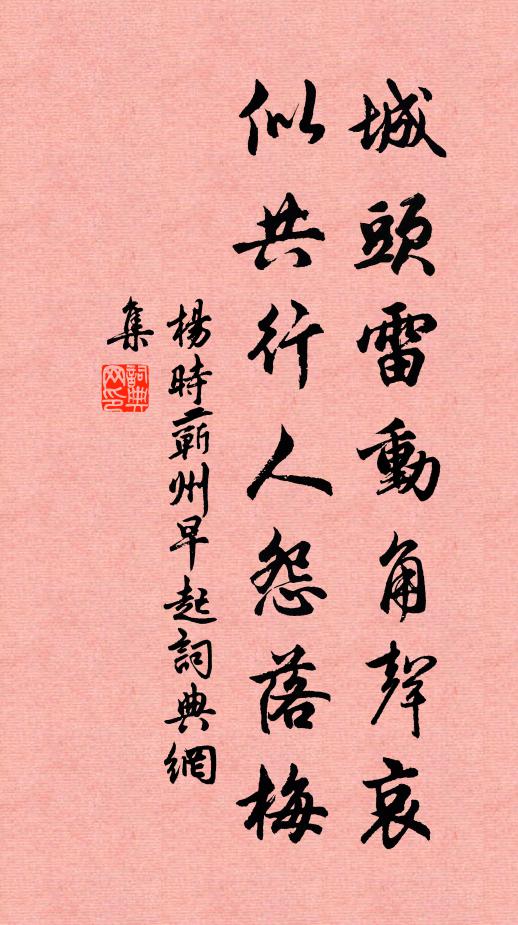 城頭雷動角聲哀
似共行人怨落梅
楊時蘄州早起詞典網
集
詞典
网印